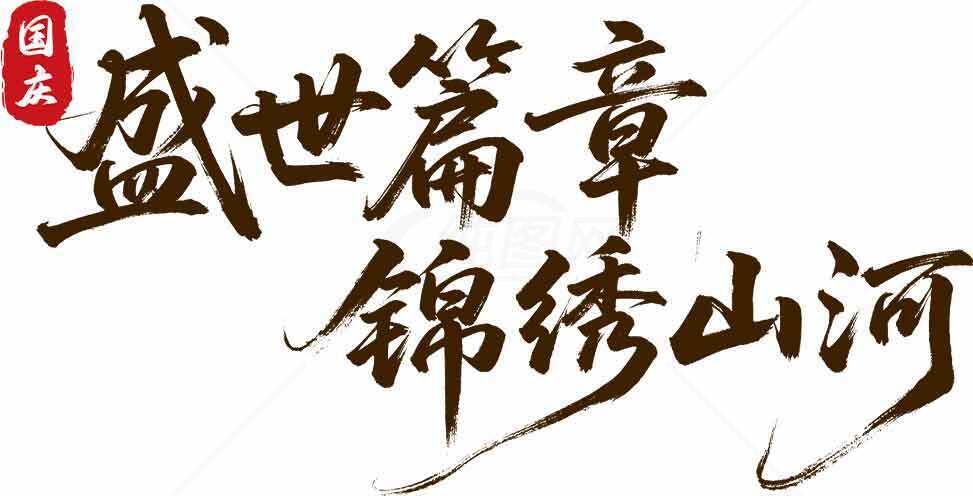 国庆
盛世篇章
锦绣山河